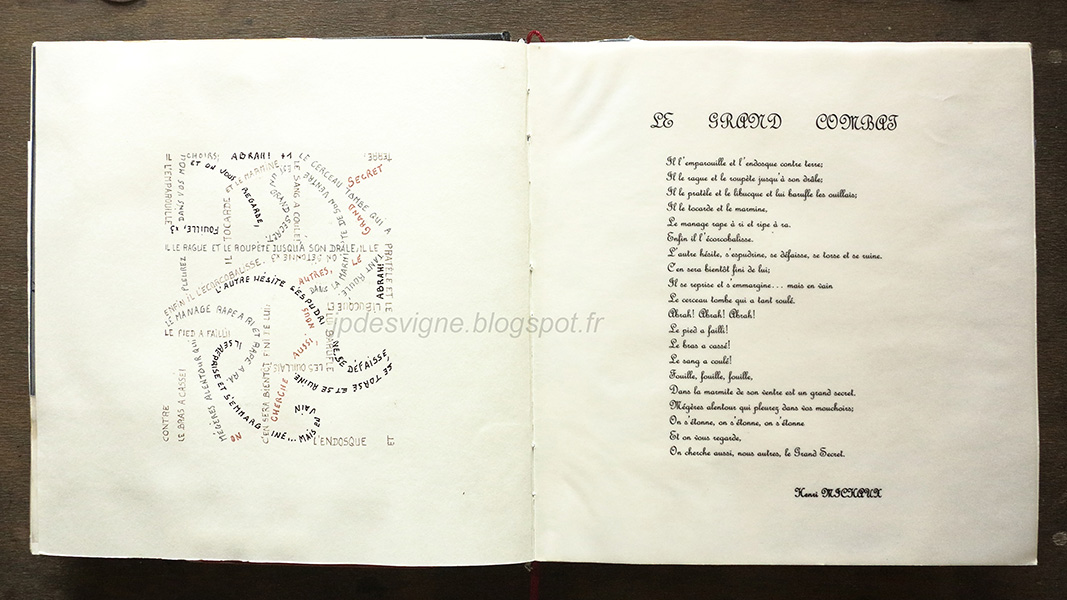 IL CHOIRS; ABRAH! *1 LE CERCEAU TOMBE QUI A
TERRE,
L'EMPAROUILLE
DANS VOS MOU
ET ON VOUS REGARDE,
FOUILLE *3
IL TOCARDE ET LE MARMINE
LE SANG A COULÉ!
UN GRAND SECRET,
DE SON VENTRE
DANS LA MARMITE
GRAND SECRET
IL LE RAGUE ET LE ROUPÈTE JUSQU'À SON DRÂLE; IL LE
PRATÈLE ET LE
LIBUCQUE ET
LUI BARUFLE
LES OUILLAIS;
TANT ROULÉ
ABRAH!
PLEUREZ
ON S'ÉTONNE *3
AUTRES, LE
NOUS
AUSSI,
CHERCHE
ENFIN IL L'ECORCOBALISSE.
L'AUTRE HÉSITE S'ESPUDRINE, SE DÉFAISSE,
SE TORSE ET SE RUINE
LE MANAGE RAPE A RI ET RIPE A RA.
LE PIED A FAILLI!
IL SE REPRISE ET S'EMMARGINE... MAIS EN
VAIN
C'EN SERA BIENTÔT FINI DE LUI;
MÉGÈRES ALENTOUR QUI
LE BRAS A CASSÉ!
CONTRE
L'ENDOSQUE
ET
jpdesvigne.blogspot.fr
LE GRAND COMBAT
Il l'emparouille et l'endosque contre terre;
Il le rague et le roupète jusqu'à son drâle;
Il le pratèle et le libucque et lui barufle les ouillais;
Il le tocarde et le marmine,
Le manage rape à ri et ripe à ra.
Enfin il l'écorcobalisse.
L'autre hésite, s'espudrine, se défaisse, se torse et se ruine.
C'en sera bientôt fini de lui;
Il se reprise et s'emmargine... mais en vain
Le cerceau tombe qui a tant roulé.
Abrah! Abrah! Abrah!
Le pied a failli!
Le bras a cassé!
Le sang a coulé!
Fouille, fouille, fouille,
Dans la marmite de son ventre est un grand secret.
Mégères alentour qui pleurez dans vos mouchoirs;
On s'étonne, on s'étonne, on s'étonne
Et on vous regarde,
On cherche aussi, nous autres, le Grand Secret.
Henri MICHAUX